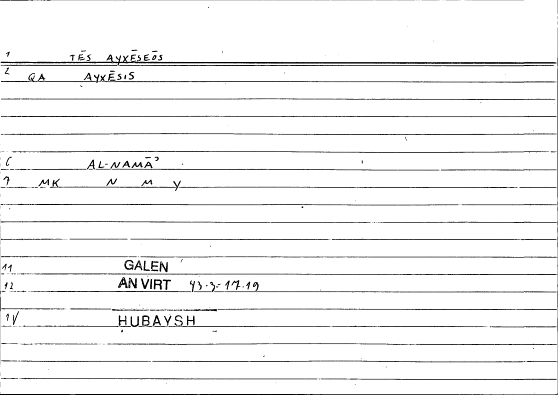 1 TĒS AYXĒSEŌS
2 QA AYXĒSIS
6 AL-NAMĀʾ
7 MK N M Y
11 GALEN
12 AN VIRT 43.3-17.19
14 HUBAYSH